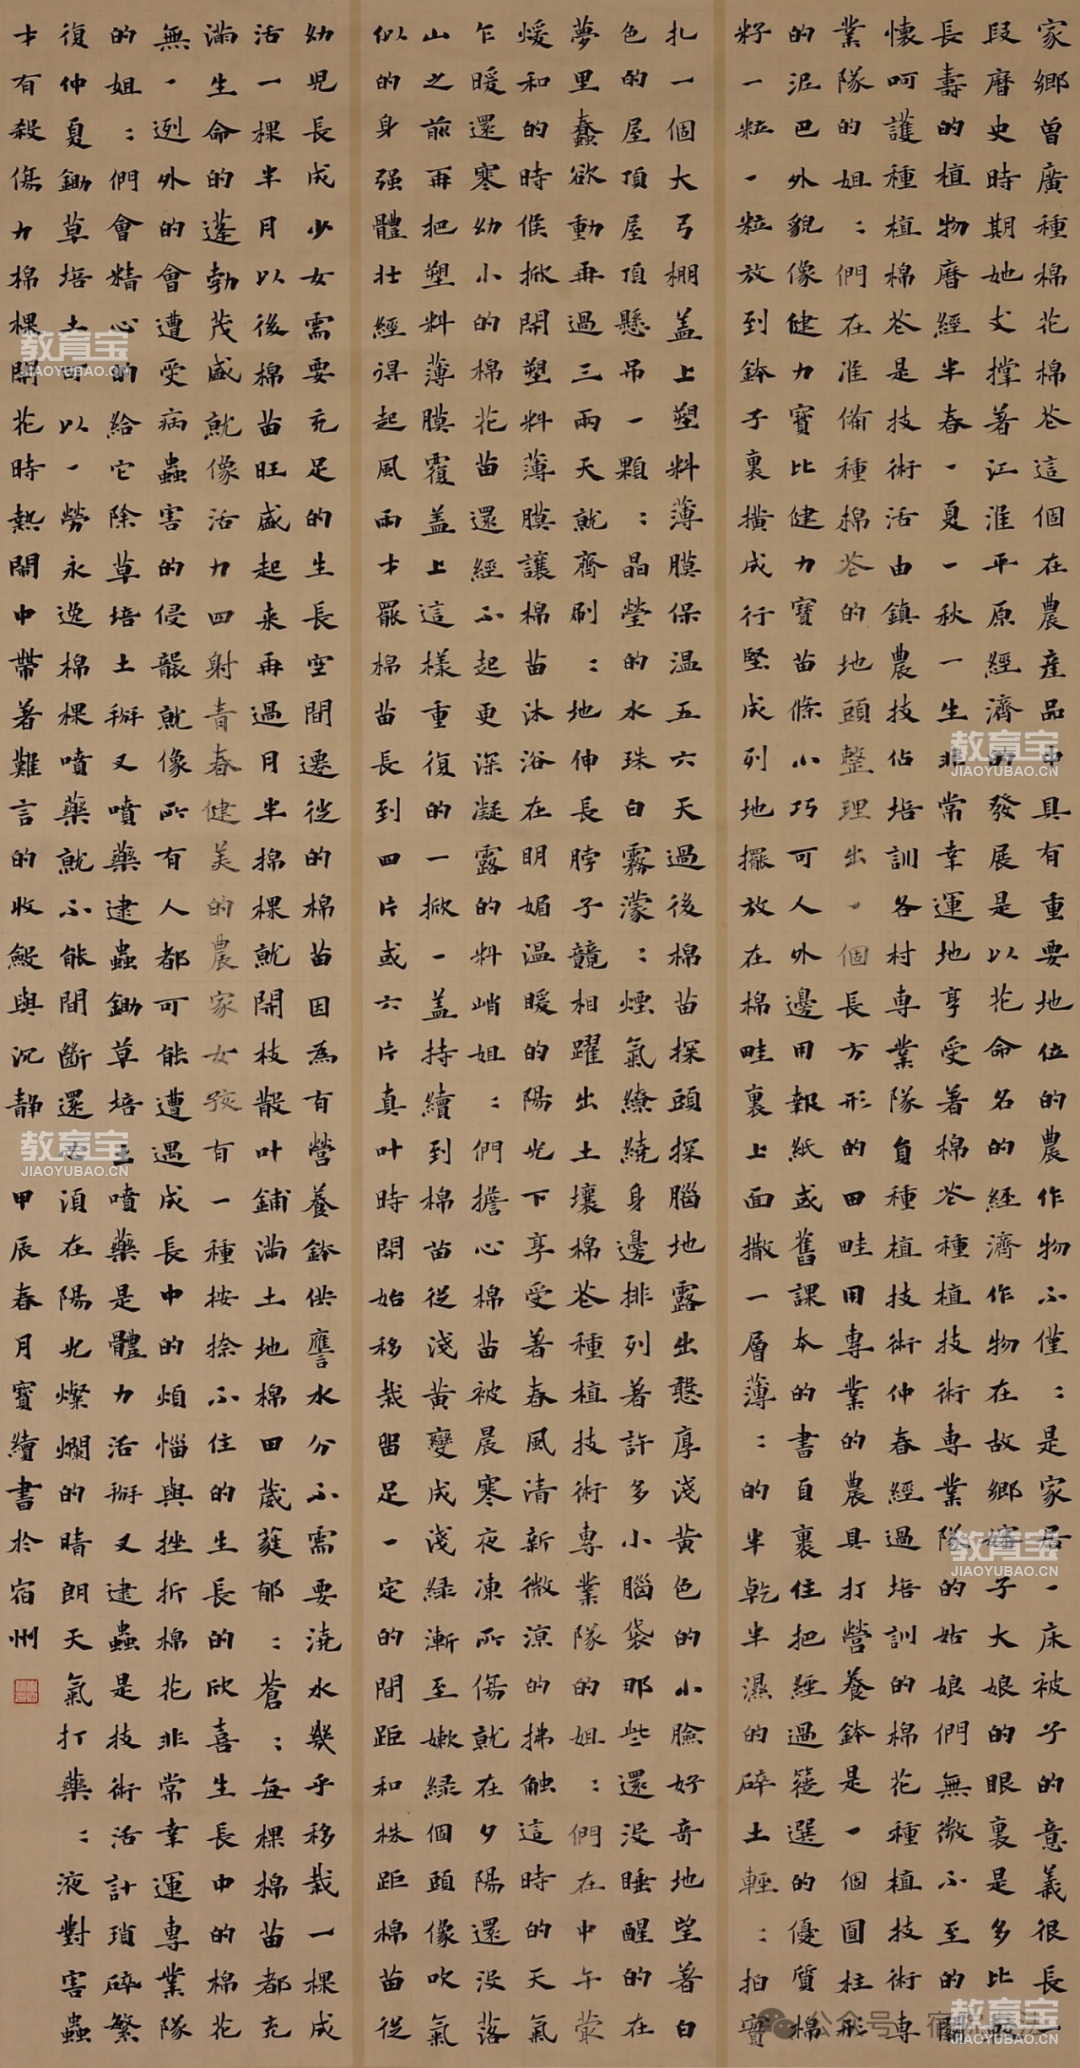 家鄉曾廣種棉花棉苍這個在農産品中具有重要地位的農作物不僅：是家居一床被子的意義很長一
段曆史時期她支撐著江淮平原經濟的發展是以花命名的經濟作物在故鄉嬸子大娘的眼裏是多比
長壽的植物曆經半春一夏一秋一生非常幸運地享受著棉苍種植技術専業隊的姑娘們無微不至的
懷呵護種植棉苍是技術活由鎮農技佔培訓各村専業隊負種植技術仲春經過培訓的棉花種植技術専
業隊的姐：們在准備種棉苍的地頭整理出一個長方形的田畦用専業的農具打營養鉢是一個圓柱形
的泥巴外貌像健力寶比健力寶苗條小巧可人外邊用報紙或舊課本的書自裏住把經過篩選的優質棉
籽一粒一粒放到鉢子裏橫成行堅成列地擺放在棉畦裏上面撒一層薄：的半乾半濕的碎土輕：拍實
扎一個大弓棚盖上塑料薄膜保温五六天過後棉苗探頭探腦地露出憨厚淺黄色的小臉好奇地望著白
色的屋頂屋頂懸吊一顆：晶瑩的水珠白霧濛：煙氣繚繞身邊排列著許多小腦袋那些還没睡醒的在
夢里蠢欲動再過三兩天就齊刷：地伸長脖子競相躍出土壤棉苍種植技術専業隊的姐：們在中午蒙
煖和的時候掀開塑料薄膜讓棉苗沐浴在明媚温暖的陽光下享受著春風清新微涼的拂触這時的天氣
乍暖還寒幼小的棉花苗還經不起更深凝露的料峭姐：們擔心棉苗被晨寒夜凍所傷就在夕陽還没落
山之前再把塑料薄膜覆盖上這樣重復的一掀一盖持續到棉苗從淺黄變成淺緑漸至嫩緑個頭像吹氣
似的身强體壮經得起風雨才罷棉苗長到四片或六片真叶時開始移栽留足一定的間距和株距棉苗從
幼児長成少女需要充足的生長空間遷徙的棉苗因為有營養鉢供應水分不需要澆水幾乎移栽一棵成
活一棵半月以後棉苗旺盛起来再過月半棉棵就開枝散叶鋪滿土地棉田葳蕤郁：蒼：每棵棉苗都充
滿生命的蓬勃茂盛就像活力四射青春健美的農家女孩有一種按捺不住的生長的欣喜生長中的棉花
無一例外的會遭受病蟲害的侵襲就像所有人都可能遭遇成長中的煩惱與挫折棉花非常幸運専業隊
的姐：們會精心的給它除草培土掰叉噴藥逮蟲鋤草培土噴藥是體力活掰叉逮蟲是技術活計瑣碎繁
復仲夏鋤草培土可以一勞永逸棉棵噴藥就不能間斷還必須在陽光燦爛的晴朗天氣打藥：液對害蟲
才有殺傷力棉棵開花時熱鬧中帶著難言的收縠與沉静甲辰春月寳續書於宿州
教育宝
JIAOYUBAO.CN
教育宝
JIAOYUBAO.CN
教育宝
JIAOYUBAO.CN
教育宝
JIAOYUBAO.CN
教育宝
JIAOYUBAO.CN
公众号